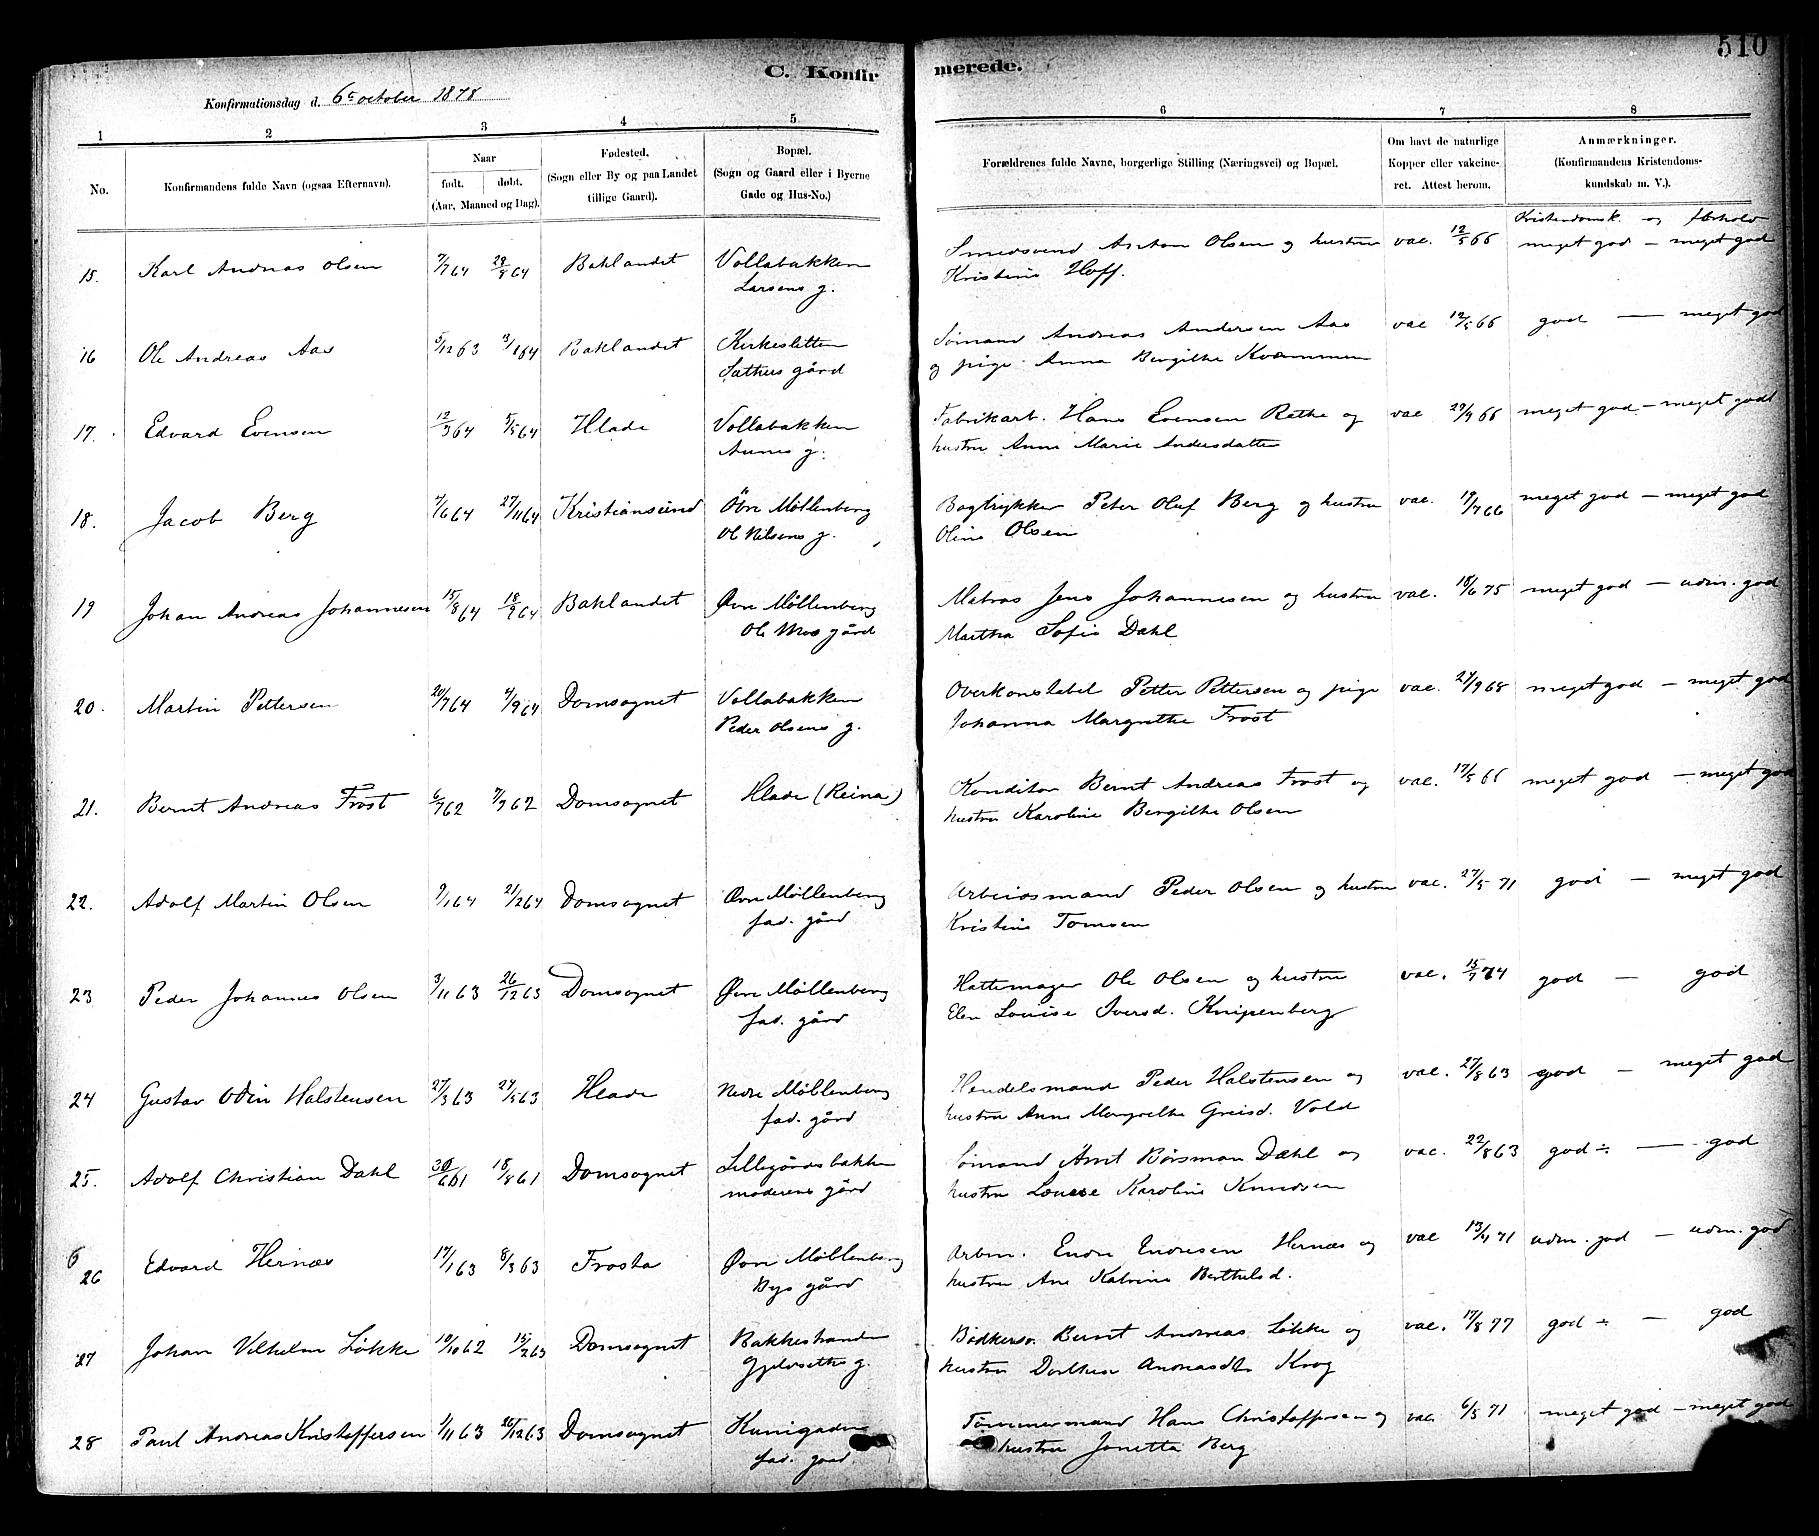 510
C. Konfirmerede.
Konfirmationsdag d. 6te october 1878
1 2 3 4 5 6 7 8
No.
Konfirmandens fulde Navn (ogsaa Efternavn).
Naar
født. døbt.
(Aar, Maaned og Dag).
Fødested.
(Sogn eller By og paa Landet
tillige Gaard).
Bopæl.
(Sogn og Gaard eller i Byerne
Gade og Hus-No.)
Forældrenes fulde Navne, borgerlige Stilling (Næringsvei) og Bopæl.
Om havt de naturlige
Kopper eller vakcine-
ret. Attest herom.
Anmærkninger.
(Konfirmandens Kristendoms-
kundskab m. V.).
Kristendomsk. og forhold
15. Karl Andreas Olsen 7/7 64 28/8 64 Baklandet Vollabakken Smedsvend Anton Olsen og hustru vac. 12/5 66 meget god — meget god
Larsens g. Kristine Hoff.
16 Ole Andreas Aas 5/12 63 3/1 64 Baklandet Kirkesletten Sømand Andreas Andersen Aas vac 12/5 66 god — meget god
Sæthers gård og pige Anna Bergithe Kvammen
17. Edvard Evensen 12/3 64 5/5 64 Hlade Vollabakken Fabrikarb. Hans Evensen Rethe og vac 29/9 66 meget god — meget god
Aunes g. hustru Anne Marie Andersdatter
18. Jacob Berg 4/6 64 27/11 64 Kristiansund Övre Möllenberg Bogtrykker Peter Oluf Berg og hustru vac. 19/7 66 meget god — meget god
Ol Nilsens g. Oline Olsen
19 Johan Andreas Johannesen 15/8 64 18/9 64 Baklandet Øvre Möllenberg Matros Jens Johannesen og hustru vac. 18/6 75 meget god — udm. god
Ole Moes gård Martha Sofie Dahl
20. Martin Pettersen 20/7 64 4/9 64 Domsognet Vollabakken Overkonstabel Petter Pettersen og pige vac. 27/9 68 meget god — meget god
Peder Olsens g. Johanna Margrethe Frost
21. Bernt Andreas Frost 6/7 62 7/9 62 Domsognet Hlade (Reina) Konditor Bernt Andreas Frost og vac. 17/5 65 meget god — meget god
hustru Karoline Bergithe Olsen
22. Adolf Martin Olsen 9/1 64 21/2 64 Domsognet Øvre Möllenberg Arbeidsmand Peder Olsen og hustru vac. 27/5 71 god — meget god
fad. gård Kristine Tomsen
23 Peder Johannes Olsen 3/11 63 26/12 63 Domsognet Øvre Möllenberg Hattemager Ole Olsen og hustru vac. 15/1 74 god — god
fad. gård Elen Louise Iversd. Knipenberg
24 Gustav Odin Halstensen 27/3 63 24/5 63 Hlade Nedre Möllenberg Hendelsmand Peder Halstensen og vac. 27/8 63 god — meget god
fad. gård hustru Anne Margrethe Greisd. Vold
25. Adolf Christian Dahl 30/6 61 18/8 61 Domsognet Lillegårdsbakken Sømand Arnt Börsman Dahl og vac. 22/8 63 god ÷ — god
moderens gård hustru Louise Karoline Knudsen
6
26 Edvard Hernæs 17/1 63 8/3 63 Frosta Øvre Möllenberg Arbm. Endre Endresen Hernæs og vac 13/4 71 udm. god — udm. god
Bys gård hustru Ane Katrine Berthelsd.
27 Johan Vilhelm Løkke 19/10 62 15/2 63 Domsognet Bakkestranden Bødkersv. Bernt Andreas Løkke og vac. 17/8 77 god ÷ — god
Gjelvseths g. hustru Dorthea Andreasdtr Krog
28 Paul Andreas Kristoffersen 1/11 63 26/12 63 Domsognet Kunigaden Tømmermand Hans Christoffersen og vac. 6/5 71 meget god — meget god
fad. gaard hustru Jonetta Berg